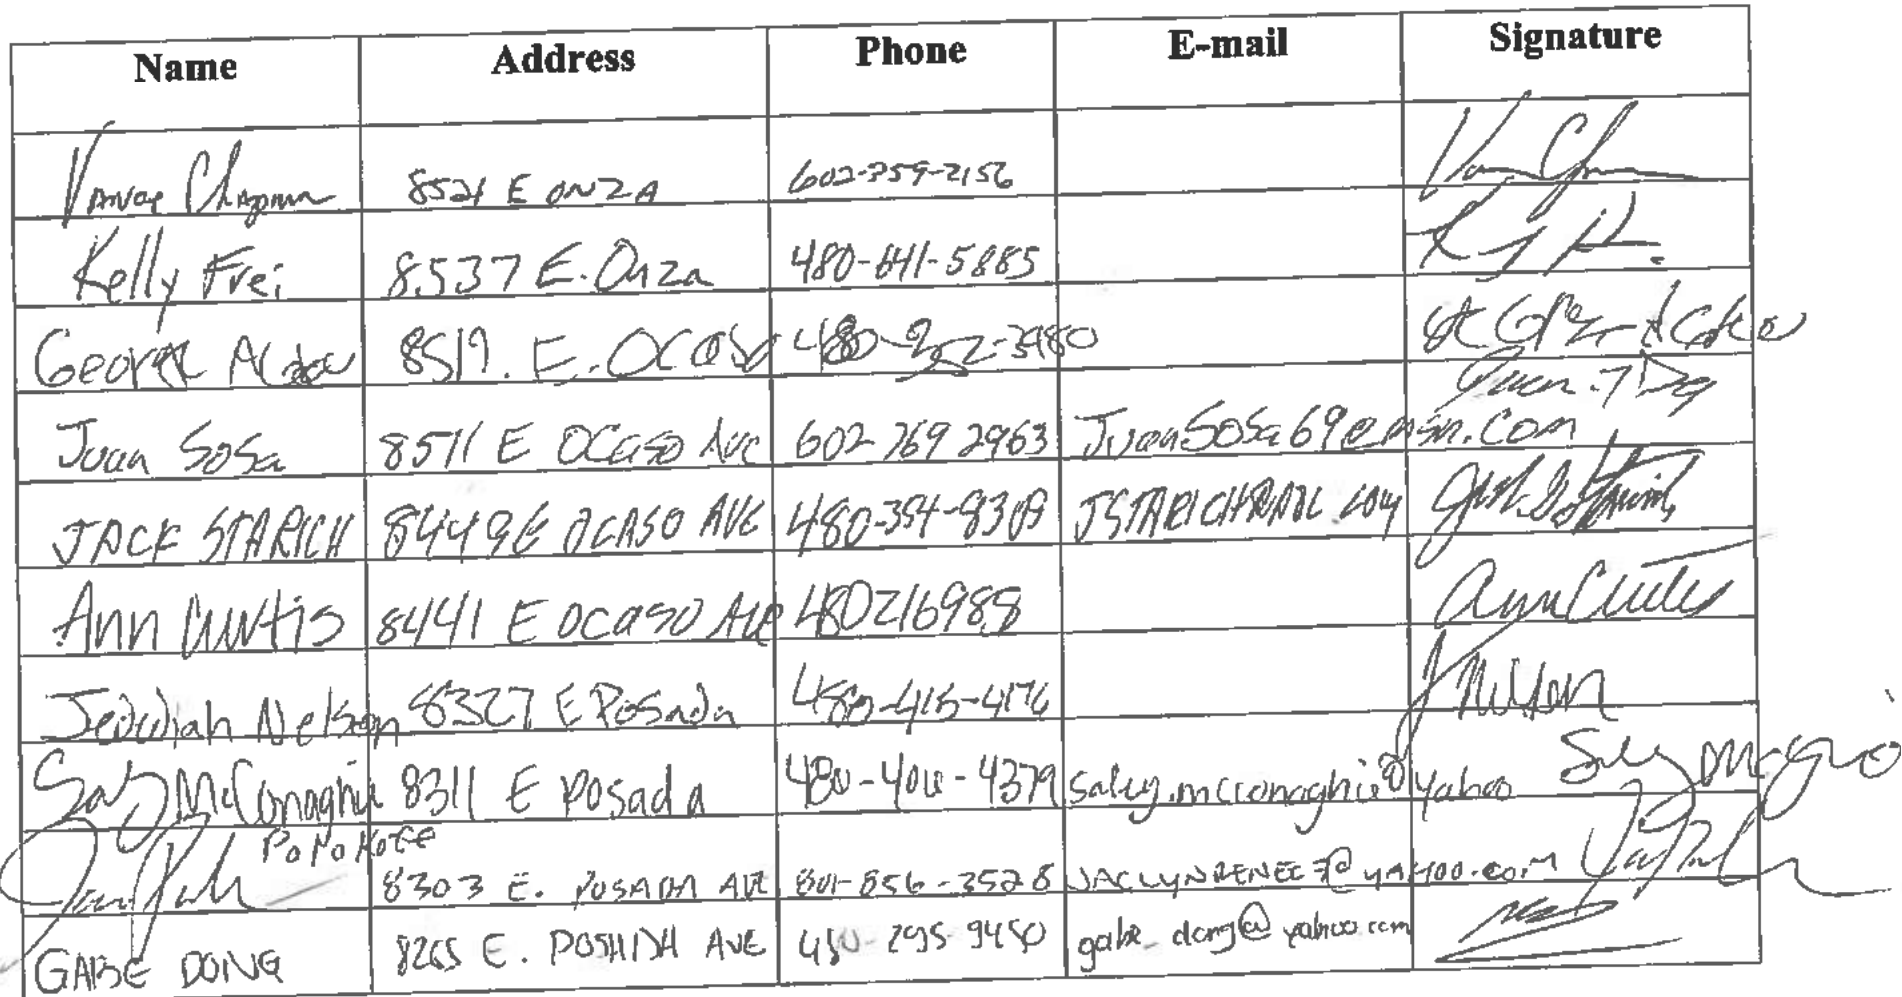 Name Address Phone E-mail Signature
Vance Chapman 8521 E ONZA 602-859-2156
Kelly Frei 8537 E. Onza 480-641-5885
George 8519. E. OCaso 480-252-3980
Juan Sosa 8511 E OCaso Ave 602 769 2963 JuanSosa69@msn.com
JACK STARICH 8449 E OCASO AVE 480-354-8309
Ann Curtis 8441 E OCaso Ave 480216988 Ann Curtis
Jedidiah Nelson 8327 E Posada 480-415-4176 J Nelson
Sally McConaghie 8311 E Posada 480-4379 sally.mcconaghie@yahoo
8303 E. POSADA AVE 801-856-3528 JACLYNRENEE7@YAHOO.COM
GABE DONG 8265 E. POSADA AVE 480-295-9450 gabe_dong@yahoo.com